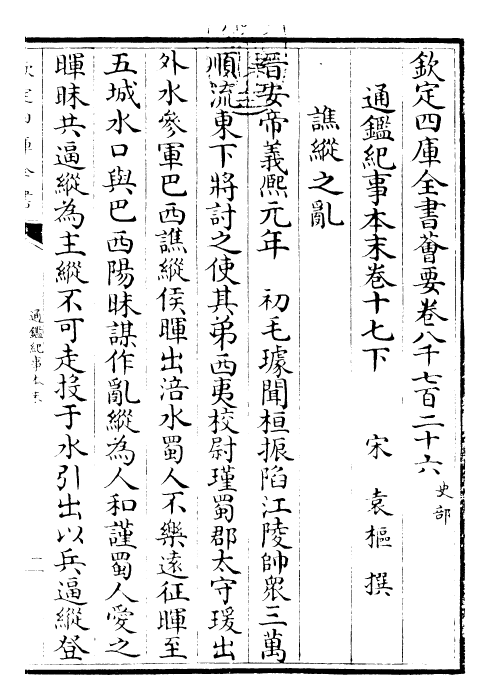 欽定四庫全書薈要卷八千七百二十六 史部
通鑑紀事本末卷十七下
宋 袁樞 撰
譙縱之亂
晉安帝義熙元年 初毛璩聞桓振陷江陵帥衆三萬
順流東下將討之使其弟西夷校尉瑾蜀郡太守瑗出
外水參軍巴西譙縱侯暉出涪水蜀人不樂遠征暉至
五城水口與巴西陽昧謀作亂縱為人和謹蜀人愛之
暉昧共逼縱為主縱不可走投于水引出以兵逼縱登
欽定四庫全書
通鑑紀事本末